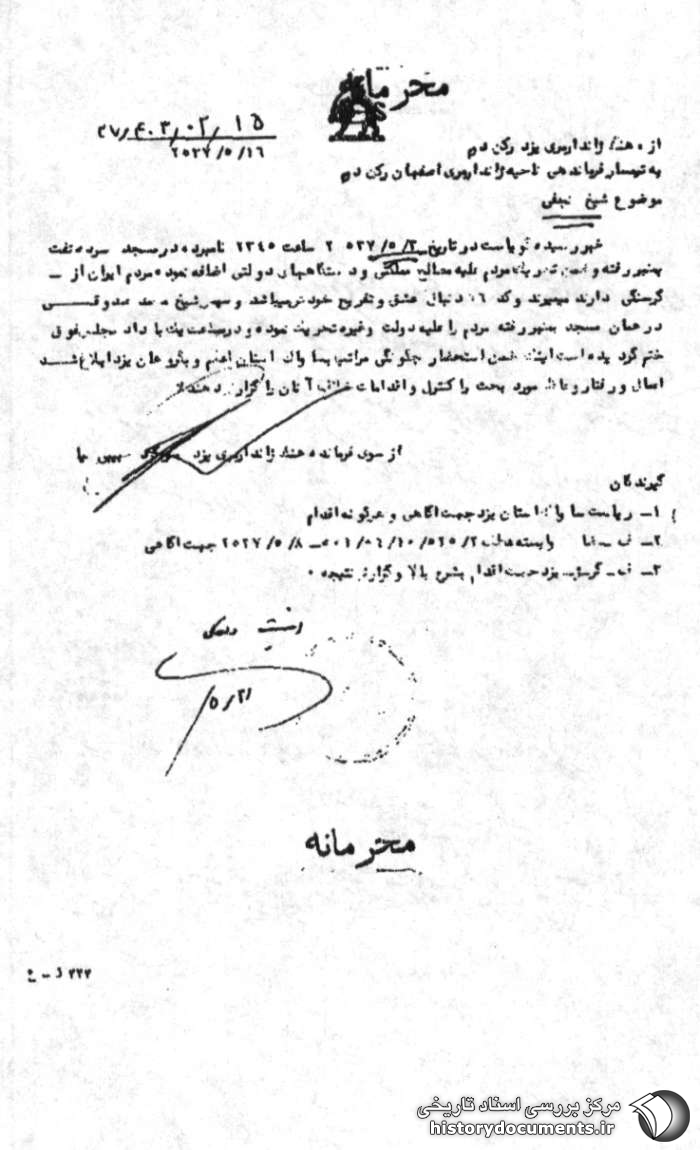 محرمانه
۲۷/۴۰۳/۰۲/۱۵
۲۵۳۷/۵/۱۶
از هنگ ژاندارمری یزد رکن دو
به تیمسار فرماندهی ناحیه ژاندارمری اصفهان رکن دو
موضوع شیخ نجفی
خبر رسیده گویاست در تاریخ ۲۵۳۷/۵/۲ ساعت ۲۳۴۵ نامبرده در مسجد تفت
بمنبر رفته و ضمن تحریک مردم علیه مصالح مملکتی و دستگاههای دولتی اضافه نموده مردم ایران از
گرسنگی دارند میمیرند دنبال عشق و تفریح خود میباشد و سپس شیخ محمد صدوقی
در همان مسجد بمنبر رفته مردم را علیه دولت وغیره تحریک نموده و درساعت یک بامداد مجلس فوق
ختم گردیده است اینک ضمن استحضار چگونگی مراتب بساواک استان اعلام و بگروهان یزد ابلاغ شد
اعمال و رفتار وعاظ مورد بحث را کنترل و اقدامات خلاف آنان را گزارش دهند
از سوی فرمانده هنگ ژاندارمری یزد
گیرندگان
۱ـ ریاست ساواک استان یزد جهت آگاهی و هرگونه اقدام
۲ـ ۲۵۳۷/۵/۸ جهت آگاهی
۳ـ یزد جهت اقدام بشرح بالا و گزارش نتیجه ۰
۵/۲۱
محرمانه
۲۲۳
مرکز بررسی اسناد تاریخی
historydocuments.ir